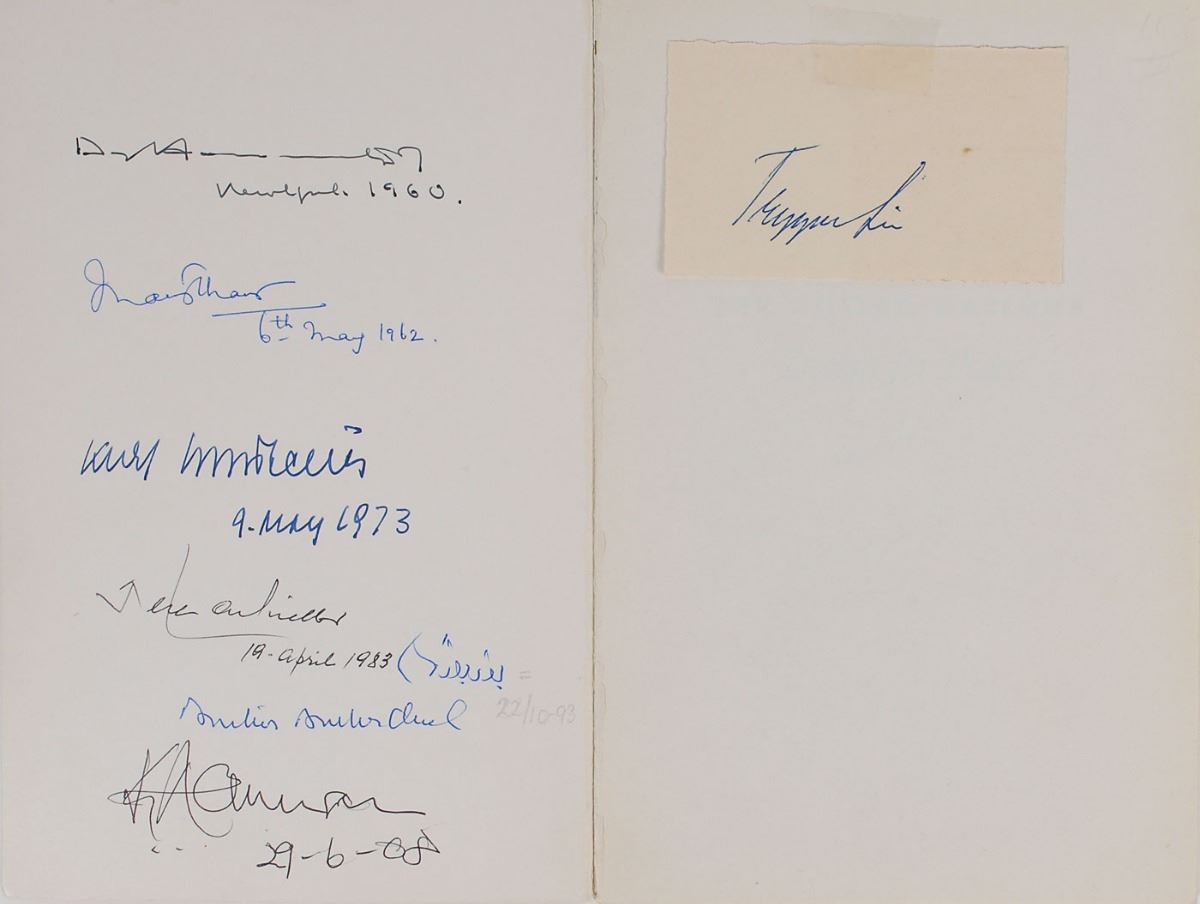 Dag Hammarskjöld
New York. 1960.
Maung Thant
6th May 1962.
Kurt Waldheim
9. May 1973
19-April 1983
22/10-93
Boutros Boutros Ghali
Kofi Annan
29-6-08
Trygve Lie